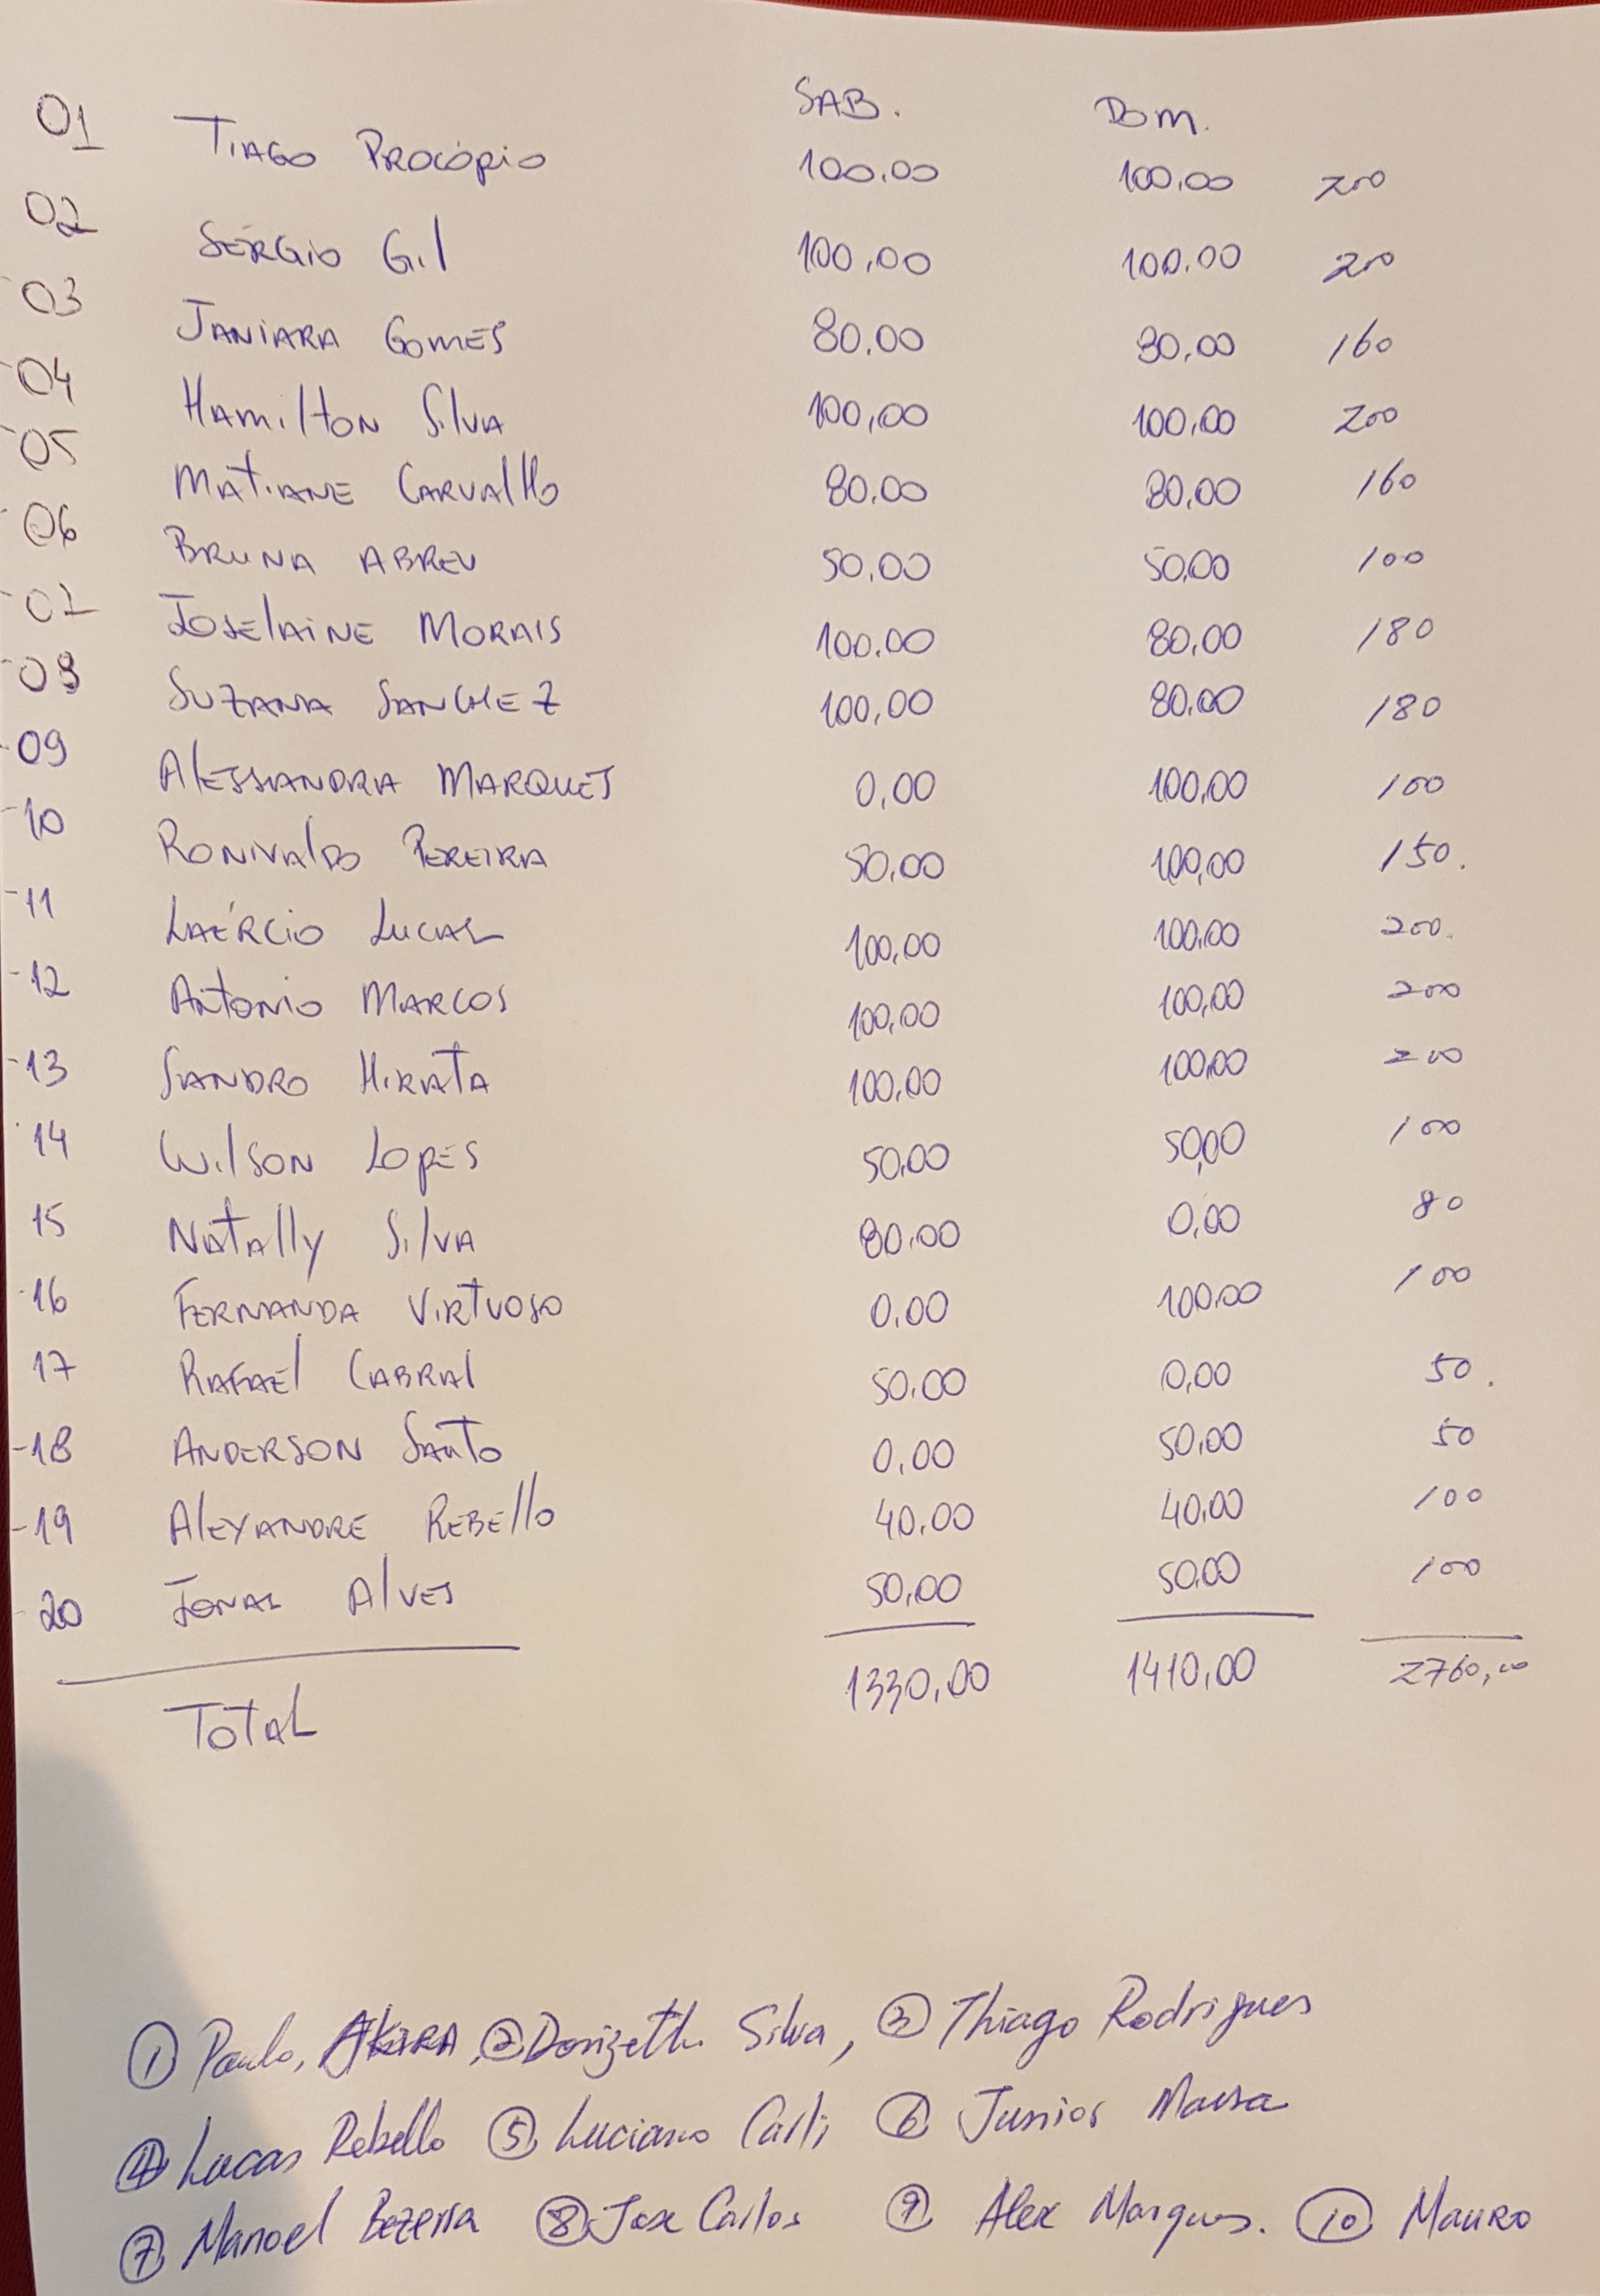 SAB. DOM.
01 TIAGO PROCÓPIO 100,00 100,00 200
02 SÉRGIO GIL 100,00 100,00 200
03 JANIARA GOMES 80,00 80,00 160
04 HAMILTON SILVA 100,00 100,00 200
05 MATIANE CARVALHO 80,00 80,00 160
06 BRUNA ABREU 50,00 50,00 100
07 JOSELAINE MORAIS 100,00 80,00 180
08 SUZANA SANCHEZ 100,00 80,00 180
09 ALESSANDRA MARQUES 0,00 100,00 100
10 RONIVALDO PEREIRA 50,00 100,00 150.
11 LAÉRCIO LUCAS 100,00 100,00 200.
12 ANTONIO MARCOS 100,00 100,00 200
13 SANDRO HIRATA 100,00 100,00 200
14 WILSON LOPES 50,00 50,00 100
15 NATALLY SILVA 80,00 0,00 80
16 FERNANDA VIRTUOSO 0,00 100,00 100
17 RAFAEL CABRAL 50,00 0,00 50.
18 ANDERSON SANTO 0,00 50,00 50
19 ALEXANDRE REBELLO 40,00 40,00 100
20 JONAS ALVES 50,00 50,00 100
TOTAL 1330,00 1410,00 2760,00
① Paulo, AKIRA, ② Donizeth Silva, ③ Thiago Rodrigues
④ Lucas Rebello ⑤ Luciano Carli ⑥ Junior
⑦ Manoel Bezerra ⑧ Jose Carlos ⑨ Alex Marques. ⑩ Mauro